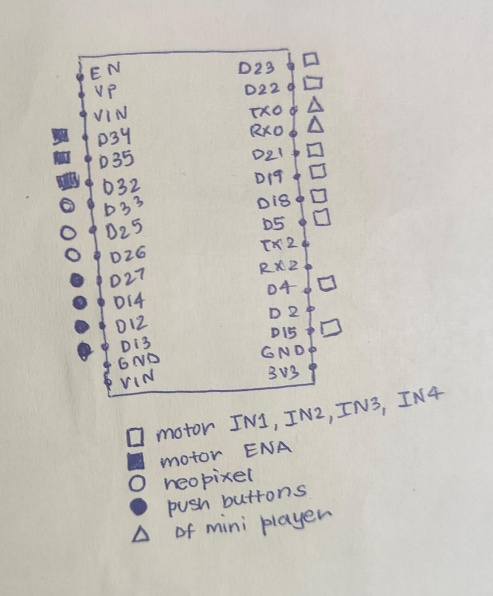 EN
VP
VIN
D34
D35
D32
D33
D25
D26
D27
D14
D12
D13
GND
VIN
D23
D22
TX0
RX0
D21
D19
D18
D5
TX2
RX2
D4
D2
D15
GND
3V3
motor IN1, IN2, IN3, IN4
motor ENA
neopixel
push buttons
Df mini player